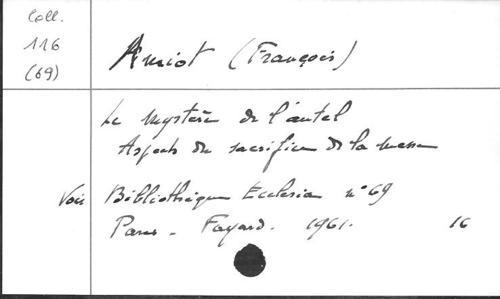 Coll.
116
(69)
Amiot (François)
Le mystère de l'autel
Aspects du sacrifice de la messe
Voir Bibliothèque Ecclesia n° 69
Paris - Fayard. 1961. 16